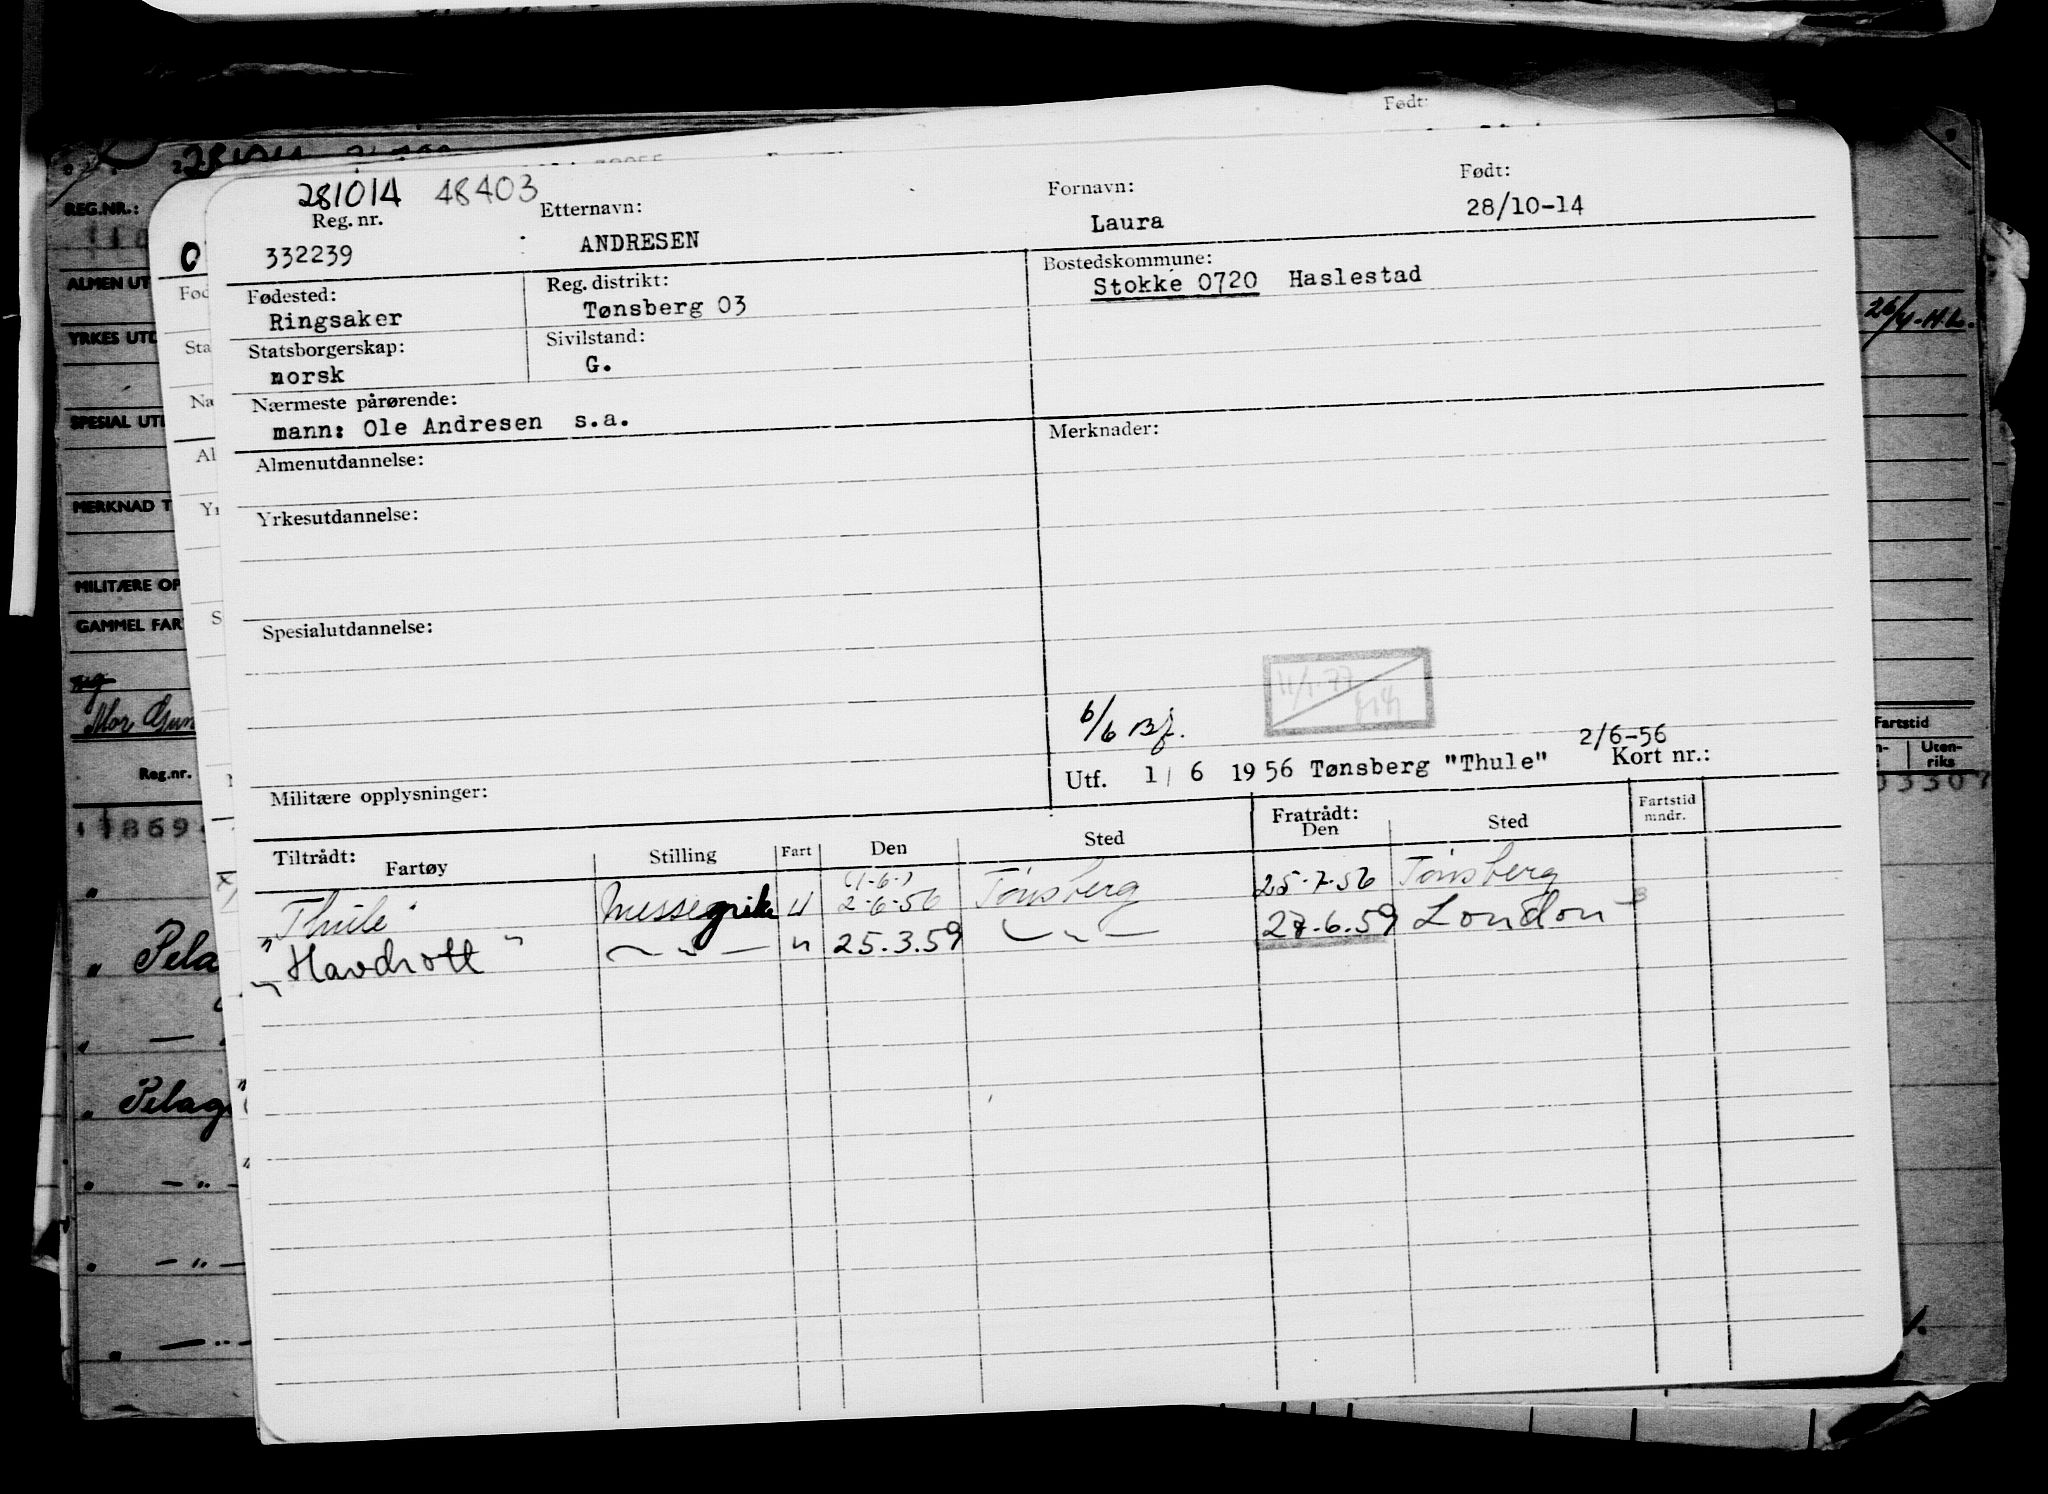 Født:
281014 48403
Reg. nr. Etternavn: Fornavn: Født:
332239 ANDRESEN Laura 28/10-14
Fødested: Reg. distrikt: Bostedskommune:
Ringsaker Tønsberg 03 Stokke 0720 Haslestad
Statsborgerskap: Sivilstand:
norsk G.
Nærmeste pårørende:
mann: Ole Andresen s.a.
Almenutdannelse: Merknader:
Yrkesutdannelse:
Spesialutdannelse:
6/6 Bf.
2/6-56
Utf. 1/6 1956 Tønsberg "Thule" Kort nr.:
Militære opplysninger:
Tiltrådt: Fratrådt: Fartstid
Fartøy Stilling Fart Den Sted Den Sted mndr.
(1-6-)
"Thule" Messepike U 2-6-56 Tønsberg 25-7-56 Tønsberg
"Havdrott" — " — " 25.3.59 — " — 27.6.59 London
REG.NR.:
ALMEN UT
YRKES UTD
SPESIAL UTD
MERKNAD T
MILITÆRE OP
GAMMEL FAR
Mor Gun
Reg.nr.
Fartstid
Uten-
riks
33307
" Pela
" Pelag